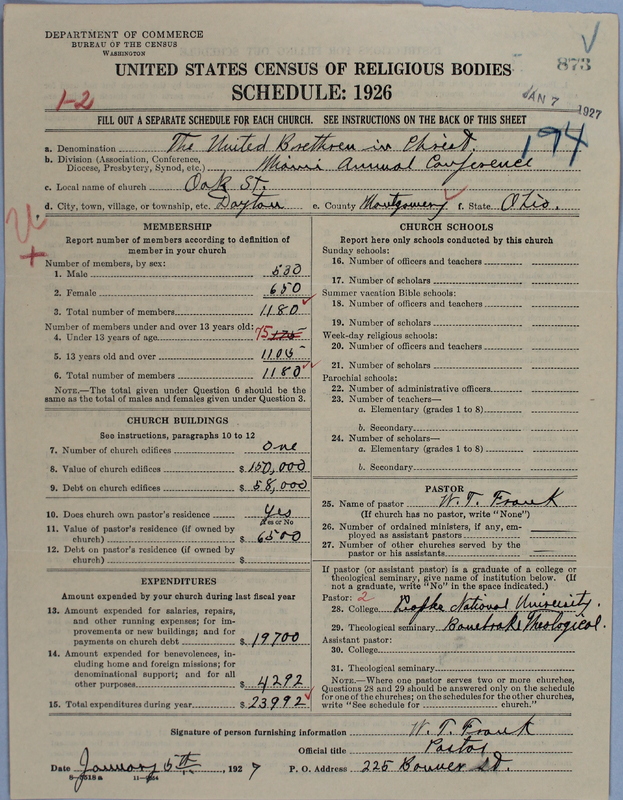 DEPARTMENT OF COMMERCE
BUREAU OF THE CENSUS
WASHINGTON
873
UNITED STATES CENSUS OF RELIGIOUS BODIES
SCHEDULE: 1926
1-2
JAN 7 1927
194
FILL OUT A SEPARATE SCHEDULE FOR EACH CHURCH. SEE INSTRUCTIONS ON THE BACK OF THIS SHEET
a. Denomination The United Brethren in Christ.
b. Division (Association, Conference,
Diocese, Presbytery, Synod, etc.) Miami Annual Conference
c. Local name of church Oak St.
d. City, town, village, or township, etc. Dayton e. County Montgomery f. State Ohio.
MEMBERSHIP
Report number of members according to definition of
member in your church
Number of members, by sex:
1. Male 530
2. Female 650
3. Total number of members 1180
Number of members under and over 13 years old:
4. Under 13 years of age 75 175
5. 13 years old and over 1105
6. Total number of members 1180
NOTE.—The total given under Question 6 should be
same as the total of males and females given under Question 3.
CHURCH BUILDINGS
See instructions, paragraphs 10 to 12
7. Number of church edifices one
8. Value of church edifices $ 150,000
9. Debt on church edifices $ 58,000
10. Does church own pastor's residence Yes
Yes or No
11. Value of pastor's residence (if owned by
church) $ 6500
12. Debt on pastor's residence (if owned by
church) $
EXPENDITURES
Amount expended by your church during last fiscal year
13. Amount expended for salaries, repairs,
and other running expenses; for im-
provements or new buildings; and for
payments on church debt $ 19700
14. Amount expended for benevolences, in-
cluding home and foreign missions; for
denominational support; and for all
other purposes $ 4292
15. Total expenditures during year $ 23992
CHURCH SCHOOLS
Report here only schools conducted by this church
Sunday schools:
16. Number of officers and teachers
17. Number of scholars
Summer vacation Bible schools:
18. Number of officers and teachers
19. Number of scholars
Week-day religious schools:
20. Number of officers and teachers
21. Number of scholars
Parochial schools:
22. Number of administrative officers
23. Number of teachers—
a. Elementary (grades 1 to 8)
b. Secondary
24. Number of scholars—
a. Elementary (grades 1 to 8)
b. Secondary
PASTOR
25. Name of pastor W. T. Frank
(If church has no pastor, write "None")
26. Number of ordained ministers, if any, em-
ployed as assistant pastors
27. Number of other churches served by the
pastor or his assistants
If pastor (or assistant pastor) is a graduate of a college or
theological seminary, give name of institution below. (If
not a graduate, write "No" in the space indicated.)
Pastor: 2
28. College National University.
29. Theological seminary Bonebrake Theological.
Assistant pastor:
30. College
31. Theological seminary
NOTE.—Where one pastor serves two or more churches,
Questions 28 and 29 should be answered only on the schedule
for one of the churches; on the schedules for the other churches,
write "See schedule for church."
Signature of person furnishing information W. T. Frank
Official title Pastor
Date January 5th, 1927 P. O. Address 225 Bonner St.